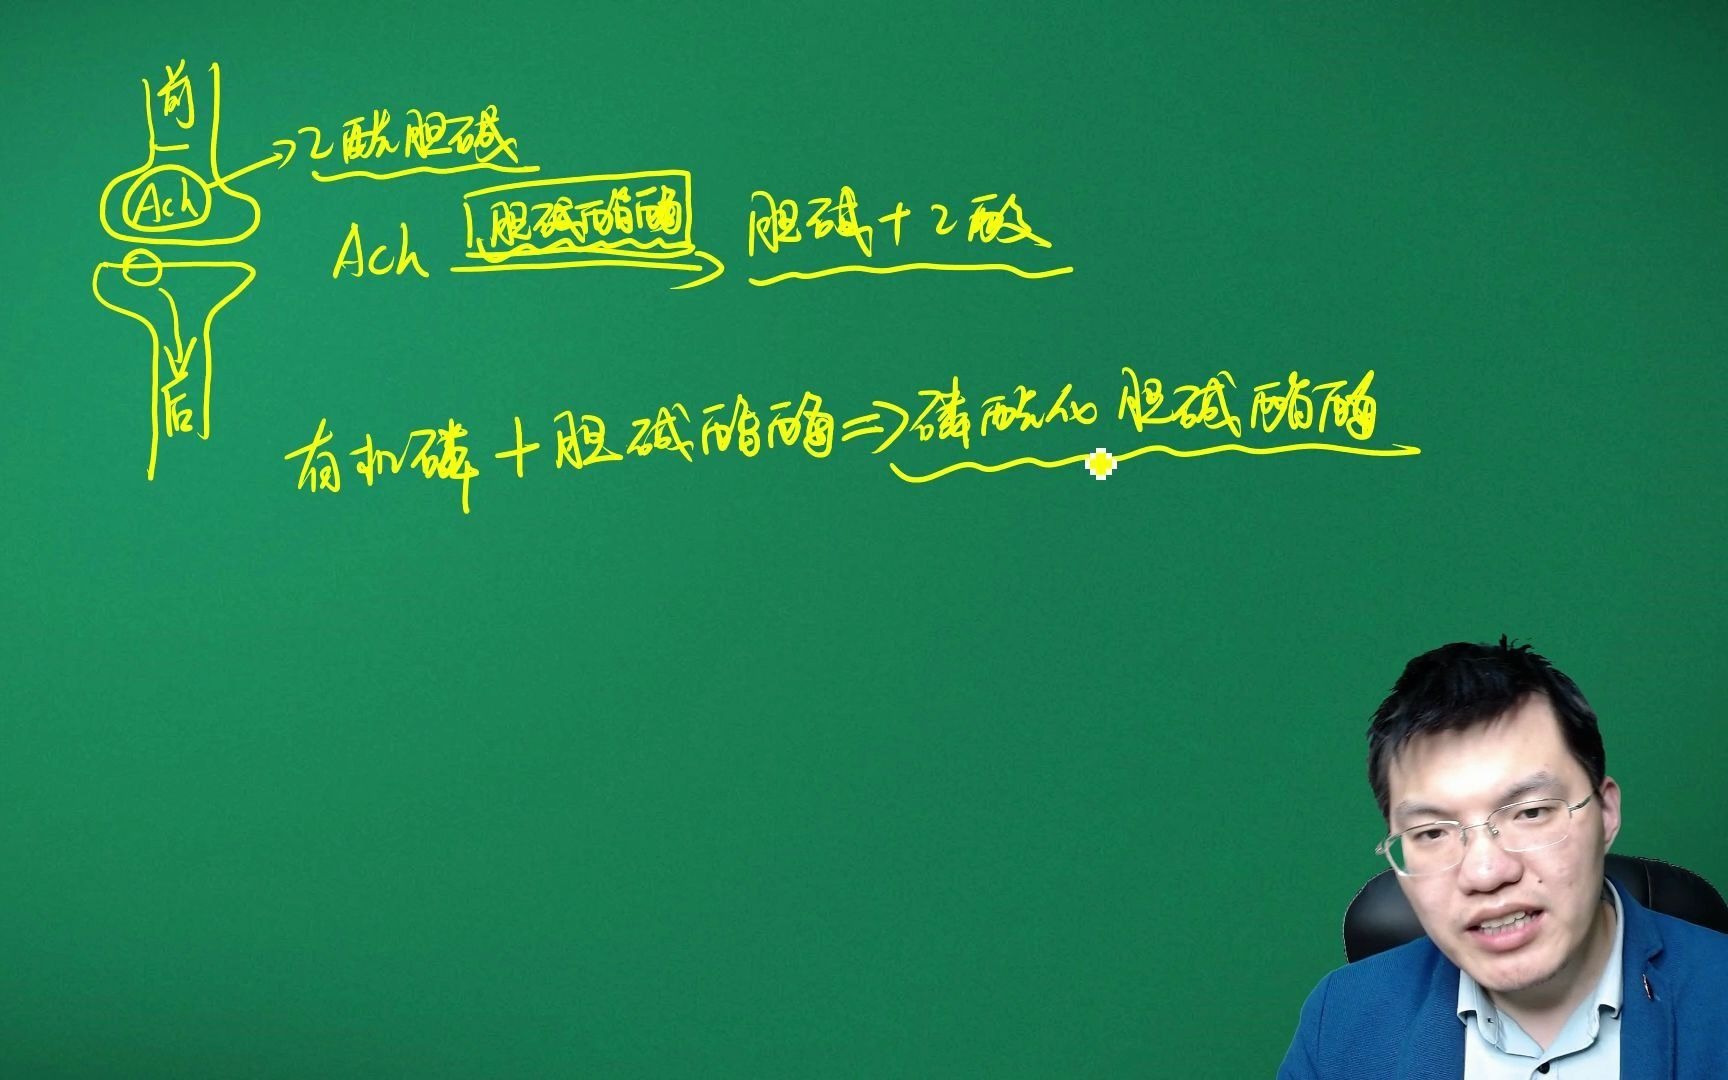 前
乙酰胆碱
Ach
Ach 胆碱酯酶 胆碱+乙酸
后
有机磷+胆碱酯酶⇒磷酰化胆碱酯酶